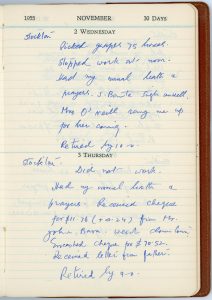 1955 NOVEMBER 30 DAYS
2 WEDNESDAY
Stockton.
Picked grapes 75 boxes.
Stopped work at noon.
Had my usual bath &
prayers.
Mrs O'neill rang me up
for her
Retired by 10-0.
3 THURSDAY
Stockton.
Did not work.
Had my usual bath &
prayers. Received cheque
for from Mr.
John Went down town
cheque for $70.52.
Received letter from father.
Retired by 9-0.